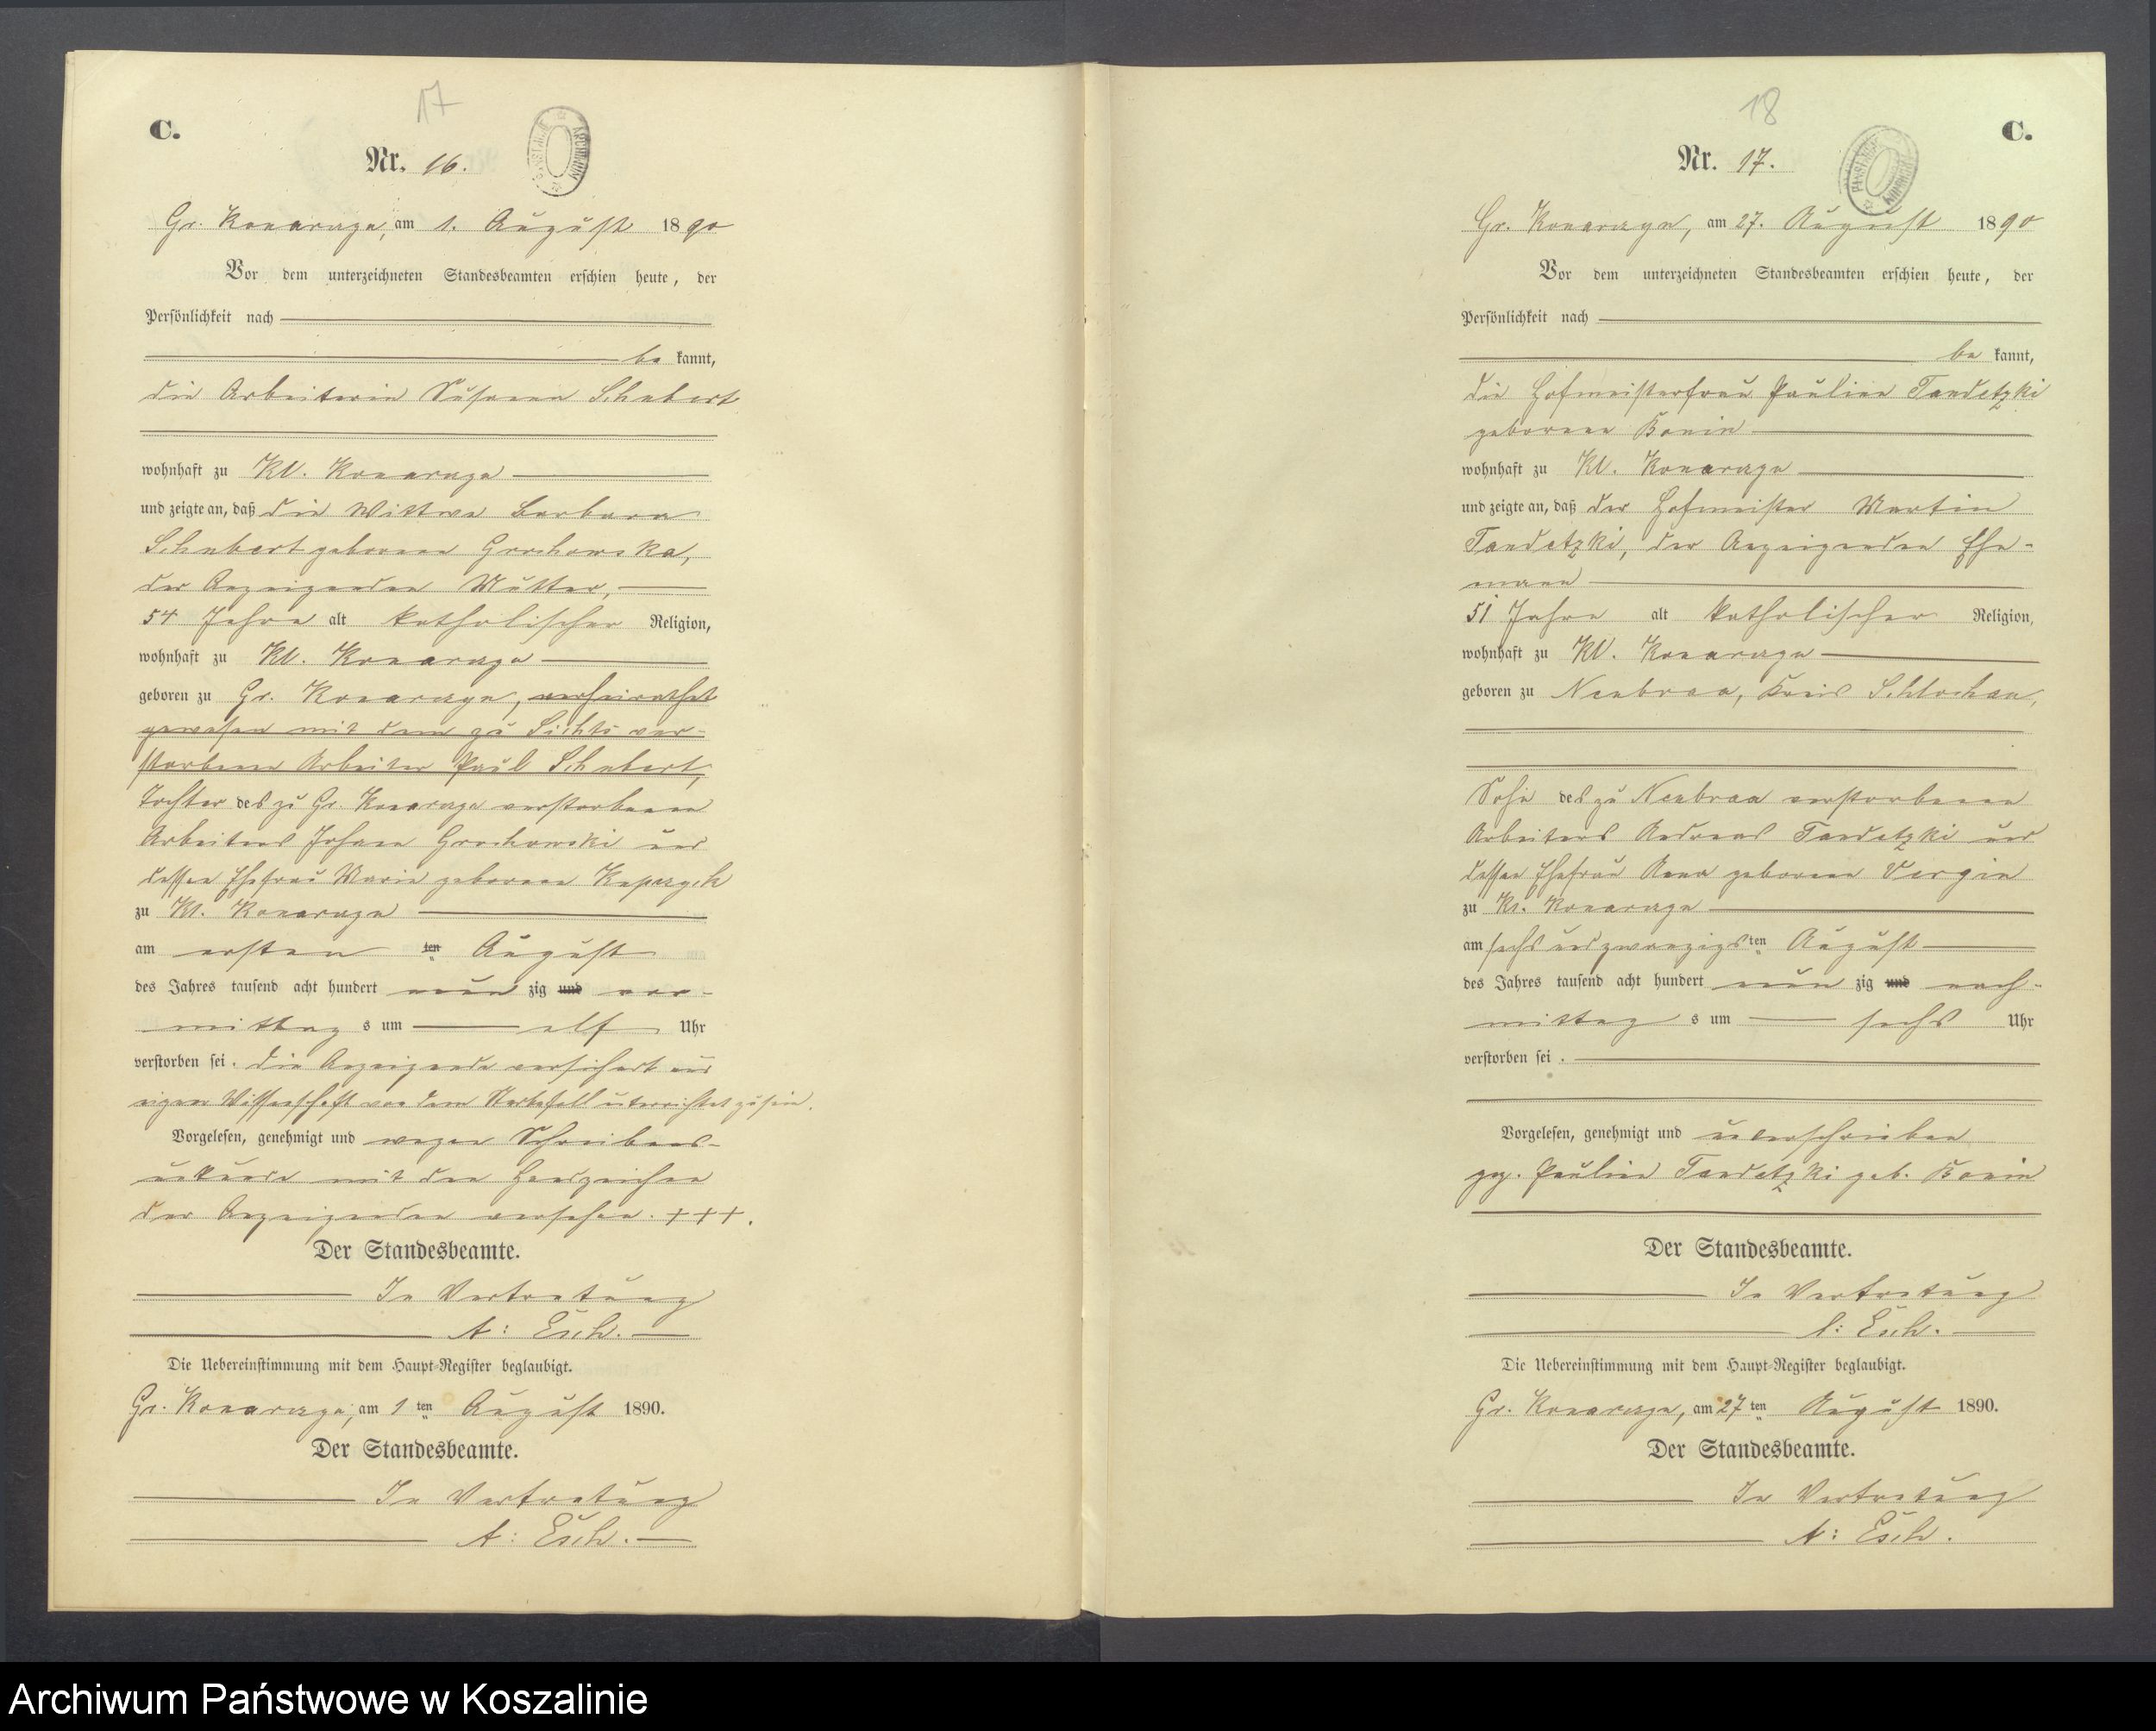 17
C.
Nr. 16.
Gr. Konarczyn, am 1. August 1890
Vor dem unterzeichneten Standesbeamten erschien heute, der
Persönlichkeit nach
be kannt,
die Arbeiterin Susanna Schubert
wohnhaft zu Kl. Konarczyn
und zeigte an, daß die Wittwe Barbara
Schubert geborene Grochowska,
der Anzeigenden Mutter,
54 Jahre alt katholischer Religion,
wohnhaft zu Kl. Konarczyn
geboren zu Gr. Konarczyn, verheirathet
gewesen mit dem zu Lichti ver-
storbenen Arbeiter Paul Schubert,
Tochter des zu Gr. Konarczyn verstorbenen
Arbeiters Johann Grochowski und
dessen Ehefrau Marie geborene
zu Kl. Konarczyn
am ersten ten August
des Jahres tausend acht hundert neun zig und vor-
mittag s um elf Uhr
verstorben sei. Die Anzeigende versichert aus
eigener Wissenschaft von dem Sterbefall unterrichtet zu sein.
Vorgelesen, genehmigt und wegen Schreibens-
unkunde mit den Handzeichen
der Anzeigenden versehen. +++.
Der Standesbeamte.
In Vertretung
A: Esch.
Die Uebereinstimmung mit dem Haupt-Register beglaubigt.
Gr. Konarczyn, am 1 ten August 1890.
Der Standesbeamte.
In Vertretung
A: Esch.
18
C.
Nr. 17.
Gr. Konarczyn, am 27. August 1890
Vor dem unterzeichneten Standesbeamten erschien heute, der
Persönlichkeit nach
be kannt,
die Hofmeisterfrau Pauline Tandetzki
geborene Bonin
wohnhaft zu Kl. Konarczyn
und zeigte an, daß der Hofmeister Martin
Tandetzki, der Anzeigenden Ehe-
mann
51 Jahre alt katholischer Religion,
wohnhaft zu Kl. Konarczyn
geboren zu Neubraa, Kreis Schlochau,
Sohn des zu Neubraa verstorbenen
Arbeiters Andreas Tandetzki und
dessen Ehefrau Anna geborene Vergin
zu Kl. Konarczyn
am sechs und zwanzigs ten August
des Jahres tausend acht hundert neun zig und nach-
mittag s um sechs Uhr
verstorben sei.
Vorgelesen, genehmigt und unterschrieben
gez. Pauline Tandetzki geb. Bonin
Der Standesbeamte.
In Vertretung
A: Esch.
Die Uebereinstimmung mit dem Haupt-Register beglaubigt.
Gr. Konarczyn, am 27 ten August 1890.
Der Standesbeamte.
In Vertretung
A: Esch.
Archiwum Państwowe w Koszalinie